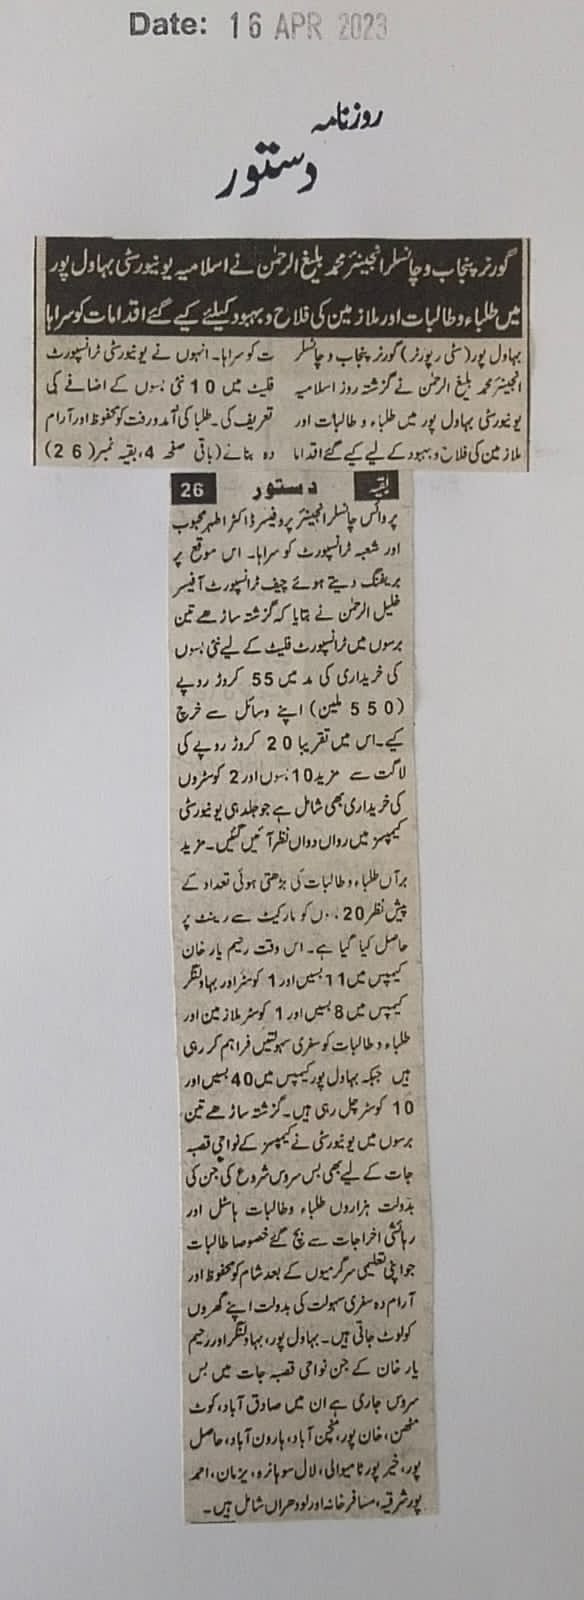 Date: 16 APR 2023
روزنامہ
دستور
گورنر پنجاب و چانسلر انجینئر محمد بلیغ الرحمٰن نے اسلامیہ یونیورسٹی بہاول پور
میں طلباء و طالبات اور ملازمین کی فلاح و بہبود کیلئے کیے گئے اقدامات کو سراہا
بہاول پور (سٹی رپورٹر) گورنر پنجاب و چانسلر
انجینئر محمد بلیغ الرحمٰن نے گزشتہ روز اسلامیہ
یونیورسٹی بہاول پور میں طلباء و طالبات اور
ملازمین کی فلاح و بہبود کے لیے کیے گئے اقداما
ت کو سراہا۔ انہوں نے یونیورسٹی ٹرانسپورٹ
فلیٹ میں 10 نئی بسوں کے اضافے کی
تعریف کی۔ طلبا کی آمد ورفت کو محفوظ اور آرام
دہ بنانے (باقی صفحہ 4، بقیہ نمبر (26)
بقیہ دستور 26
پر وائس چانسلر انجینئر پروفیسر ڈاکٹر اطہر محبوب
اور شعبہ ٹرانسپورٹ کو سراہا۔ اس موقع پر
بریفنگ دیتے ہوئے چیف ٹرانسپورٹ آفیسر
خلیل الرحمٰن نے بتایا کہ گزشتہ ساڑھے تین
برسوں میں ٹرانسپورٹ فلیٹ کے لیے نئی بسوں
کی خریداری کی مد میں 55 کروڑ روپے
(550 ملین) اپنے وسائل سے خرچ
کیے۔ اس میں تقریبا 20 کروڑ روپے کی
لاگت سے مزید 10 بسوں اور 2 کوسٹروں
کی خریداری بھی شامل ہے جو جلد ہی یونیورسٹی
کیمپسز میں رواں دواں نظر آئیں گئیں۔ مزید
برآں طلباء و طالبات کی بڑھتی ہوئی تعداد کے
پیش نظر 20 کو مارکیٹ سے رینٹ پر
حاصل کیا گیا ہے۔ اس وقت رحیم یار خان
کیمپس میں 11 بسیں اور 1 کوسٹر اور بہاولنگر
کیمپس میں 8 بسیں اور 1 کوسٹر ملازمین اور
طلباء و طالبات کو سفری سہولتیں فراہم کر رہی
ہیں جبکہ بہاول پور کیمپس میں 40 بسیں اور
10 کوسٹر چل رہی ہیں۔ گزشتہ ساڑھے تین
برسوں میں یونیورسٹی نے کیمپسز کے نواحی قصبہ
جات کے لیے بھی بس سروس شروع کی جن کی
بدولت ہزاروں طلباء وطالبات ہاسٹل اور
رہائشی اخراجات سے بچ گئے خصوصا طالبات
جو اپنی تعلیمی سرگرمیوں کے بعد شام کو محفوظ اور
آرام دہ سفری سہولت کی بدولت اپنے گھروں
کو لوٹ جاتی ہیں۔ بہاول پور، بہاولنگر اور رحیم
یار خان کے جن نواحی قصبہ جات میں بس
سروس جاری ہے ان میں صادق آباد، کوٹ
مٹھن، خان پور، منچن آباد، ہارون آباد، حاصل
پور، خیر پور ٹامیوالی، لال سوہانرہ، یزمان، احمد
پور شرقیہ، مسافر خانہ اور لودھراں شامل ہیں۔